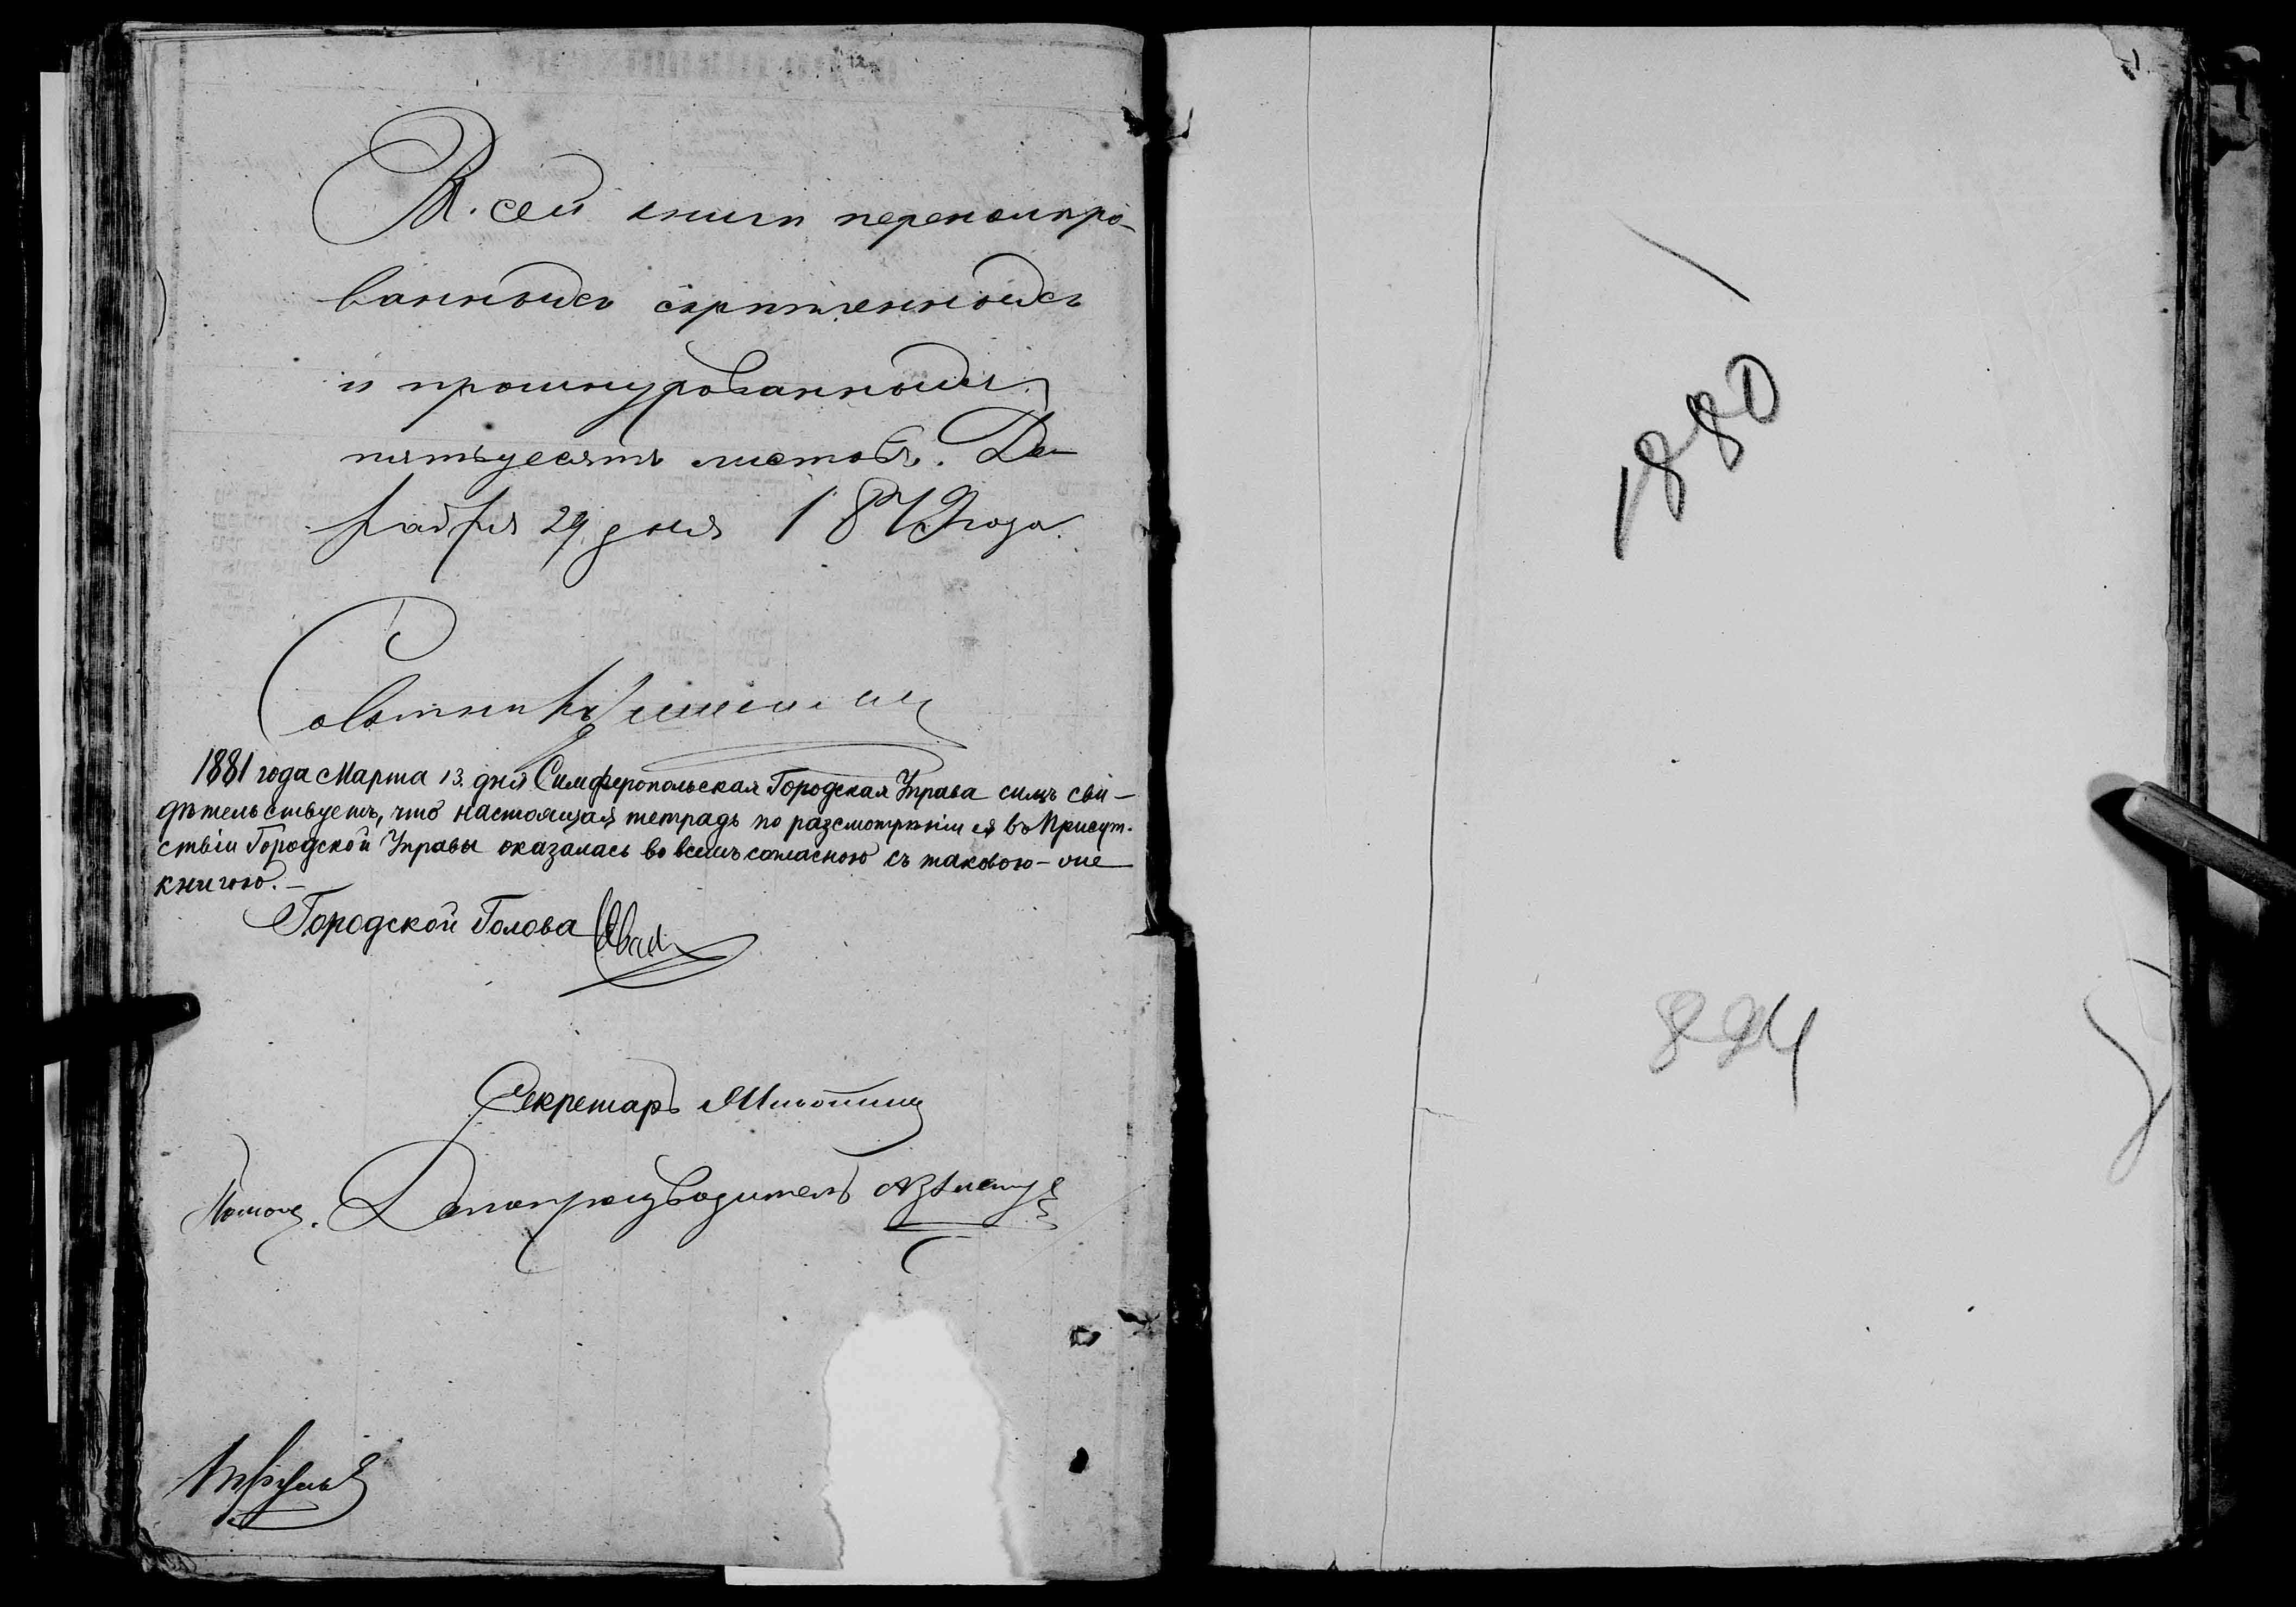 В. сей книги перенумеро-
ванныхъ скрепленныхъ
и прошнурованныхъ
пятьдесятъ листовъ. Де-
кабря 29 дня 1879 года.
Советникъ
1881 года Марта 13 дня Симферопольская Городская Управа симъ сви-
дѣтельствуетъ, что настоящая тетрадь по разсмотрѣніи ея въ Присут-
ствіи Городской Управы оказалась во всемъ согласною съ таковою-же
книгою.-
Городской Голова
Секретарь
Помощ. Делопроизводитель
1880
894